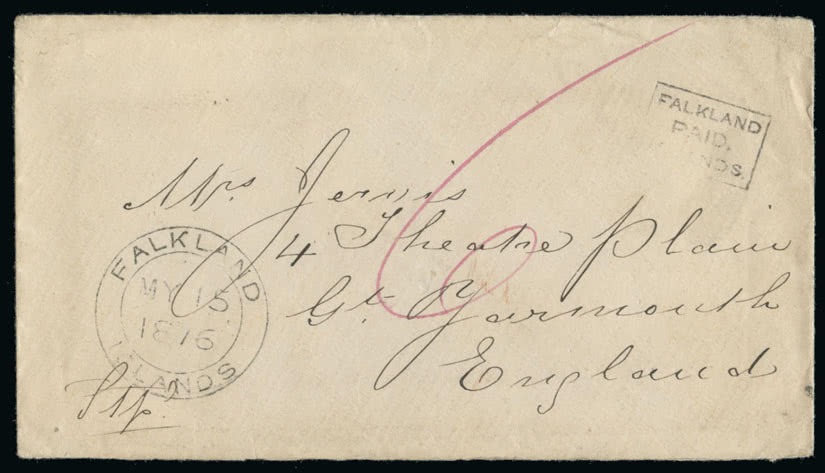 FALKLAND
PAID.
NDS.
Mrs Jervis
4 Theatre Plain
Gt. Yarmouth
England
FALKLAND
MY 15
1876
LANDS
6